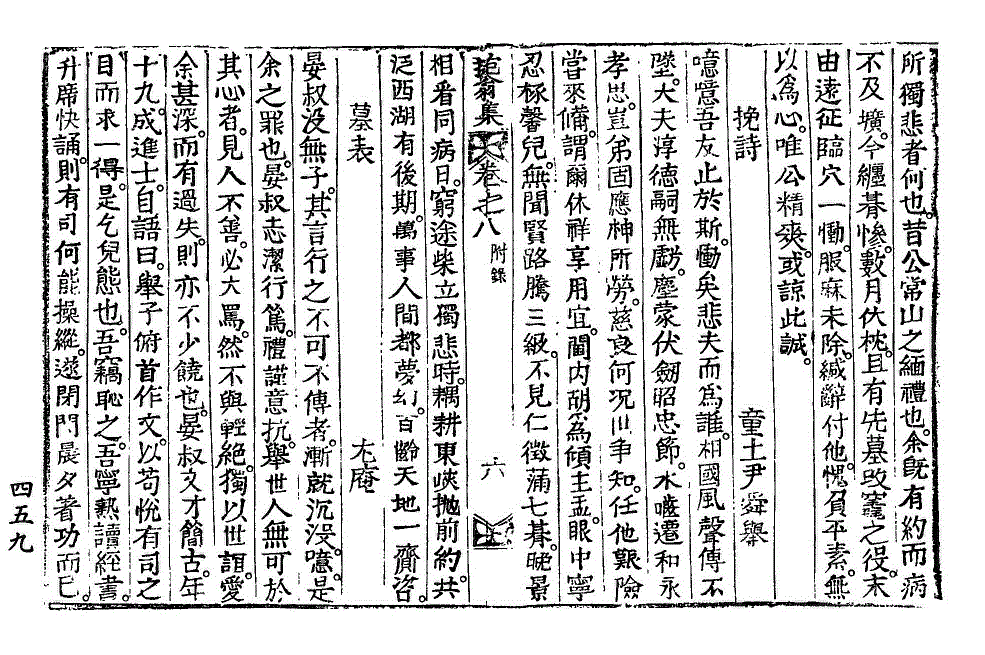 所獨悲者何也。昔公常山之緬禮也。余旣有約而病
不及壙。今纏朞慘。數月伏枕。且有先墓改竁之役。末
由遠征臨穴一慟。服麻未除。緘辭付他。愧負平素。無
以爲心。唯公精爽。或諒此誠。
挽詩 童土尹舜擧
噫噫吾友止於斯。慟矣悲夫而爲誰。相國風聲傳不
墜。大夫淳德嗣無虧。鏖蒙伏劒昭忠節。水遷和永
孝思。豈弟固應神所勞。慈良何况事知。任他艱險
嘗來備。謂爾休祥享用宜。閫內胡爲傾主盂。眼中寧
忍椓馨兒。無聞賢路騰三級。不見仁徵蒲七朞。晩景
翁集 卷之八 附錄 六
相看同病日。窮途柴立獨悲時。耦耕東峽抛前約。共
泛西湖有後期。萬事人間都夢幻。百齡天地一齎咨。
墓表 尤庵
晏叔沒無子。其言行之不可不傳者。漸就沉沒。噫。是
余之罪也。晏叔志潔行篤。禮謹意抗。擧世人無可於
其心者。見人不善。必大罵。然不與輕絶。獨以世誼。愛
余甚深。而有過失。則亦不少饒也。晏叔文才簡古。年
十九。成進士。自語曰。擧子俯首作文。以苟悅有司之
目而求一得。是乞兒態也。吾竊恥之。吾寧熟讀經書。
升席快誦。則有司何能操縱。遂閉門晨夕著功而已。
四五九